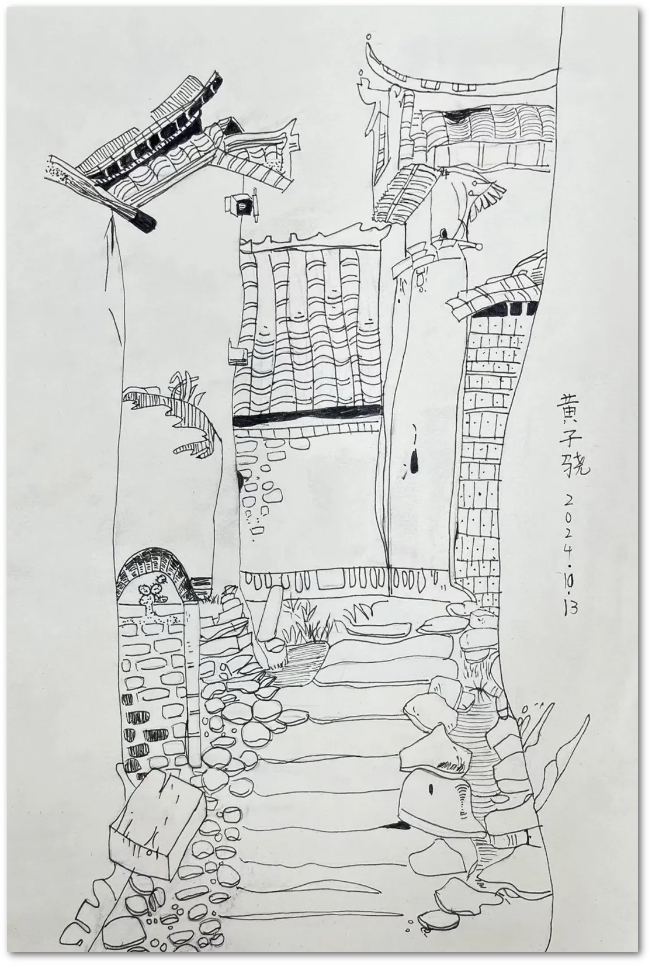 黄子骁
2024.10.13